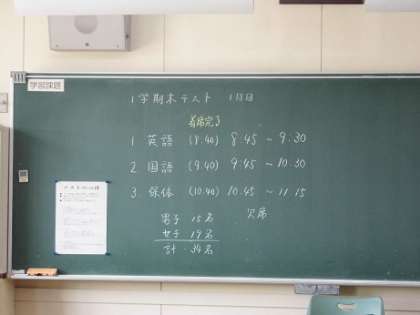 学習課題
1学期末テスト 1日目
着席完了
1 英語 (8:40) 8:45 ~ 9:30
2 国語 (9:40) 9:45 ~ 10:30
3. 保体 (10:40) 10:45 ~ 11:15
男子 15名 欠席
女子 19名
計 34名